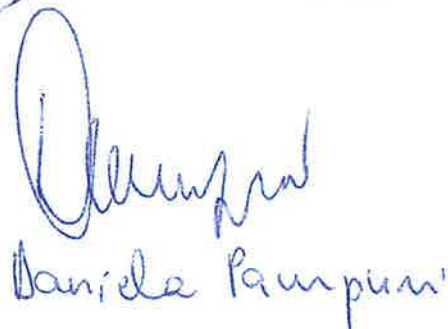 Daniela Pampuri